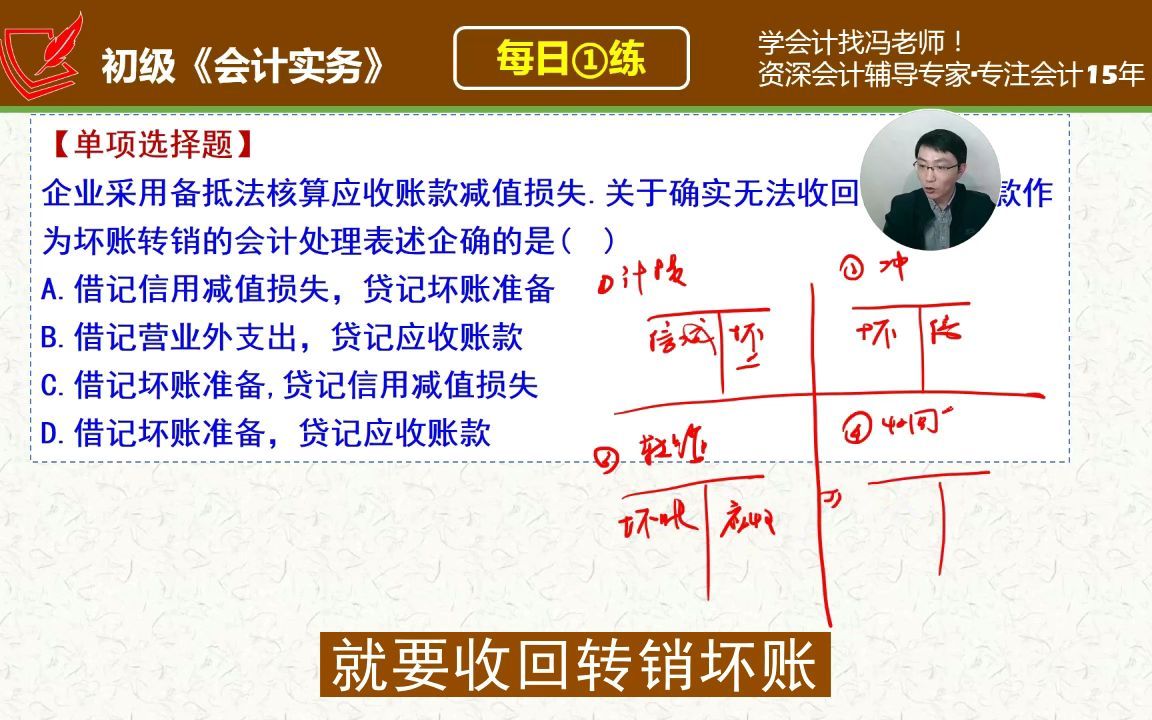 初级《会计实务》
每日①练
学会计找冯老师！
资深会计辅导专家·专注会计15年
【单项选择题】
企业采用备抵法核算应收账款减值损失.关于确实无法收回
款作
为坏账转销的会计处理表述企确的是( )
A.借记信用减值损失，贷记坏账准备
B.借记营业外支出，贷记应收账款
C.借记坏账准备,贷记信用减值损失
D.借记坏账准备，贷记应收账款
①计提
信减 坏
冲
坏 信
② 转销
坏账 应收
④ 收回
就要收回转销坏账